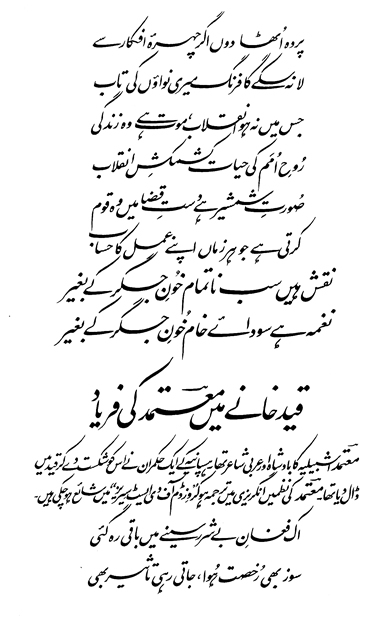 پردہ اُٹھا دوں اگر چہرۂ افکار سے
لا نہ سکے گا فرنگ میری نواؤں کی تاب
جس میں نہ ہو انقلاب، موت ہے وہ زندگی
رُوحِ اُمم کی حیات کشمکشِ انقلاب
صُورتِ شمشیر ہے دستِ قضا میں وہ قوم
کرتی ہے جو ہر زماں اپنے عمل کا حساب
نقش ہیں سب ناتمام خُونِ جگر کے بغیر
نغمہ ہے سودائے خام خُونِ جگر کے بغیر
قید خانے میں معتمد کی فریاد
معتمد اشبیلیہ کا بادشاہ اور عربی شاعر تھا۔ ہسپانیہ کے ایک حکمران نے اس کو شکست دے کر قید میں
ڈال دیا تھا۔ معتمد کی نظمیں انگریزی میں ترجمہ ہو کر ”وزڈم آف دی ایسٹ سیریز“ میں شائع ہو چکی ہیں۔
اک فغانِ بے شرر سینے میں باقی رہ گئی
سوز بھی رُخصت ہُوا، جاتی رہی تاثیر بھی